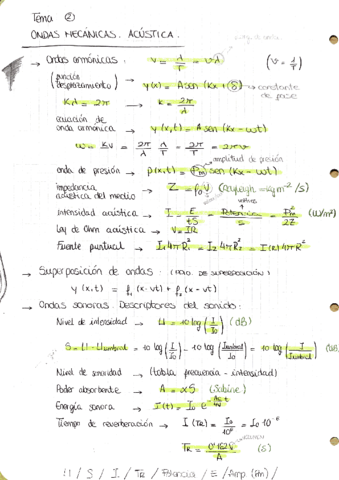 Tema ②
ONDAS MECÁNICAS. ACÚSTICA.
→ Ondas armónicas: v = λ/T = νλ (ν = 1/T)
(función desplazamiento) → y(x) = A sen (kx + δ) → constante de fase
Kλ = 2π → k = 2π/λ
ecuación de
onda armónica → y(x,t) = A sen (kx - wt)
w = kv = 2π/λ · λ/T = 2π/T = 2πν
amplitud de presión
onda de presión → p(x,t) = Pm sen (kx - wt)
impedancia
acústica del medio → Z = ρ₀v
Intensidad acústica → I = E/tS = Potencia/S = Pm²/2Z (W/m²)
Ley de Ohm acústica → V = IR
Fuente puntual → I₁4πR₁² = I₂4πR₂² = I(R)4πR²
→ Superposición de ondas: (PPIO. DE SUPERPOSICIÓN)
y(x,t) = f₁(x-vt) + f₂(x-vt)
→ Ondas sonoras. Descriptores del sonido:
Nivel de intensidad → LI = 10 log (I/I₀) (dB)
S = LI - LIumbral = 10 log (I/I₀) - 10 log (Iumbral/I₀) = 10 log (I/Iumbral) (dB)
Nivel de sonoridad → (tabla frecuencia - intensidad)
Poder absorbente → A = αS (Sabine)
Energía sonora → I(t) = I₀ e
Tiempo de reverberación → I(TR) = I₀/10⁶ = I₀ 10⁻⁶
TR = / A (S)
LI / S / I / TR / Potencia / E / Amp (Pm) /